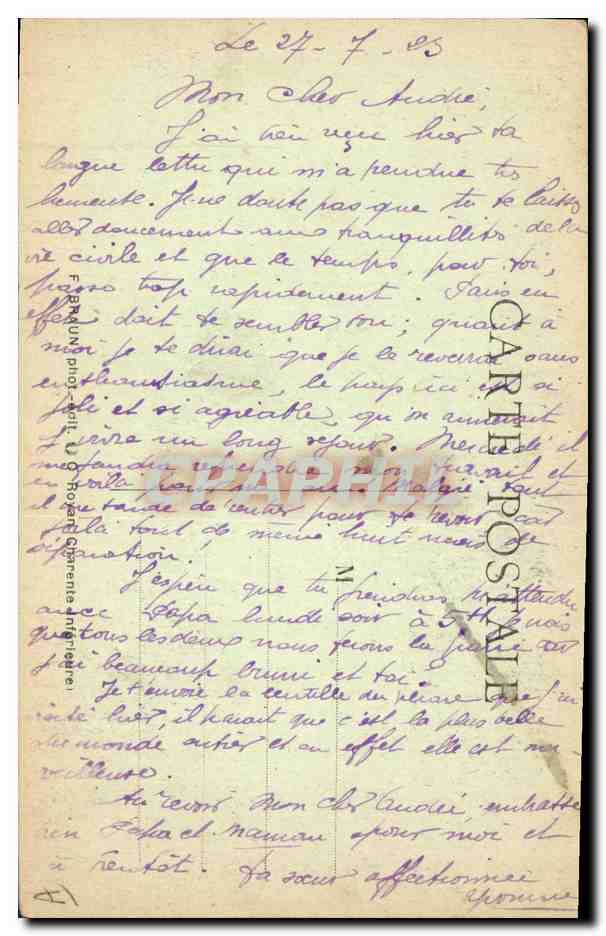 Le 27-7-23
Mon cher André,
J'ai bien reçu hier ta
longue lettre qui m'a rendue très
heureuse. Je ne doute pas que tu te laisses
aller doucement aux tranquillités de la
vie civile et que le temps, pour toi,
passe trop rapidement. Paris en
effet doit te sembler bon; quant à
moi je te dirai que je la reverrai sans
enthousiasme, le pays ici est si
joli et si agréable, qu'on aimerait
y vivre un long séjour. Mercredi il
me faudra reprendre mon travail et
en voilà pour un an. Malgré tout
il me tarde de rentrer pour te revoir car
voilà tout de même huit mois de
séparation.
J'espère que tu viendras m'attendre
avec Papa lundi soir à 5H
que tous les deux nous ferons la paire car
j'ai beaucoup bruni et toi.
Je t'envoie la lentille du phare que j'ai
visité hier, il parait que c'est la plus belle
du monde entier et en effet elle est mer-
veilleuse.
Au revoir mon cher André, embrasse
bien Papa et maman pour moi et
à bientôt. Ta sœur affectionnée
Yvonne
CARTE POSTALE
M
F. BRAUN, phot.-édit. Royan (Charente Inférieure)
CPAPHIL